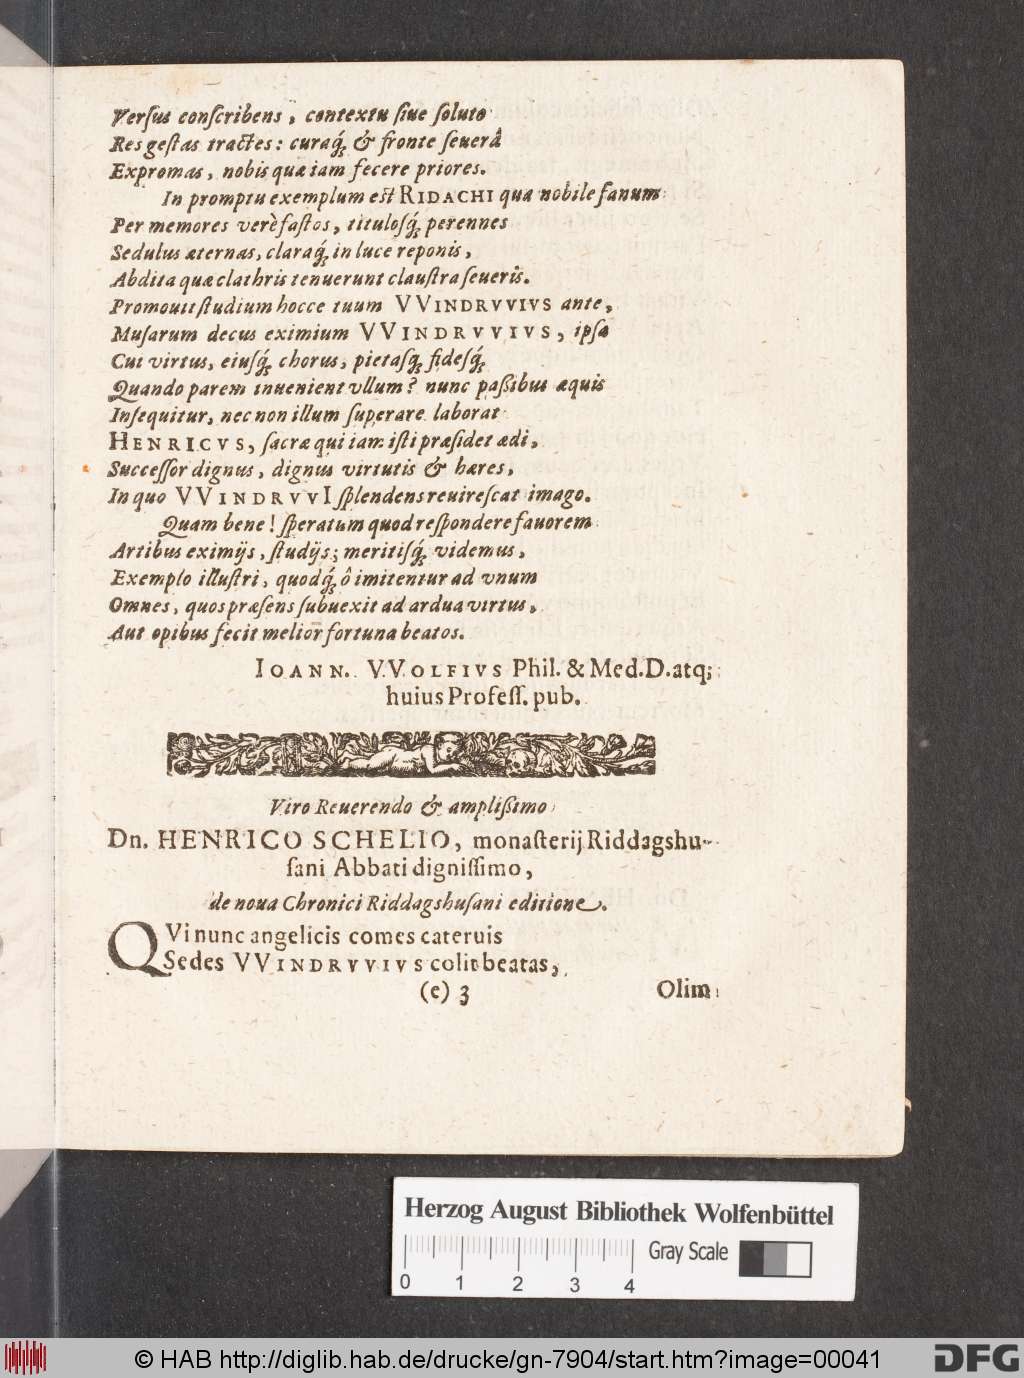 Verſus conſcribens, contextu ſiue ſoluto
Res geſtas tractes: curaq́ꝫ & fronte ſeuerâ
Expromas, nobis quæ iam fecere priores.
In promptu exemplum est RIDACHI qua nobile fanum
Per memores verè faſtos, tituloſq́ꝫ perennes
Sedulus æternas, claraq́ꝫ in luce reponis,
Abdita quæ clathris tenuerunt clauſtra ſeueris.
Promouit ſtudium hocce tuum VVINDRVVIVS ante,
Muſarum decus eximium VVINDRVVIVS, ipſæ
Cui virtus, eiuſq́ꝫ chorus, pietaſq́ꝫ fideſq́ꝫ
Quando parem inuenient vllum? nunc paßibus æquis
Inſequitur, nec non illum ſuperare laborat
HENRICVS, ſacræ qui iam iſti præſidet ædi,
Succeſſor dignus, dignus virtutis & hæres,
In quo VVINDRVVI ſplendens reuireſcat imago.
Quam bene! ſperatum quod reſpondere fauorem
Artibus eximijs, ſtudijs; meritiſq́ꝫ videmus,
Exemplo illuſtri, quodq́ꝫ ô imitentur ad vnum
Omnes, quos præſens ſubuexit ad ardua virtus,
Aut opibus fecit melior fortuna beatos.
IOANN. VVOLFIVS Phil. & Med. D. atq;
huius Profeſſ. pub.
Viro Reuerendo & amplißimo
Dn. HENRICO SCHELIO, monaſterij Riddagshu-
ſani Abbati digniſſimo,
de noua Chronici Riddagshuſani editione.
QVi nunc angelicis comes cateruis
Sedes VVINDRVVIVS colit beatas,
(e) 3 Olim
Herzog August Bibliothek Wolfenbüttel
Gray Scale
0 1 2 3 4
© HAB http://diglib.hab.de/drucke/gn-7904/start.htm?image=00041
DFG